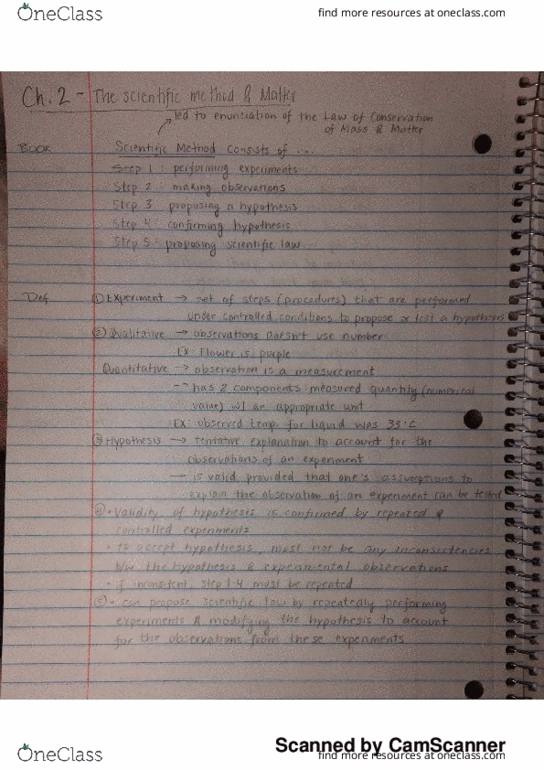 OneClass
find more resources at oneclass.com
Ch. 2 - The scientific method & Matter
led to enunciation of the Law of Conservation
of Mass & Matter
BOOK
Scientific Method consists of ...
Step 1 : performing experiments
Step 2 : making observations
Step 3 : proposing a hypothesis
Step 4 : confirming hypothesis
Step 5 : proposing scientific law
Def
① Experiment → set of steps (procedures) that are performed
under controlled conditions to propose or test a hypothesis
② Qualitative → observations doesn't use number
EX: Flower is purple
Quantitative → observation is a measurement
→ has 2 components measured quantity (numerical
value) w/ an appropriate unit
EX: observed temp. for liquid was 33°C
③ Hypothesis → tentative explanation to account for the
observations of an experiment
→ is valid provided that one's assumptions to
explain the observation of an experiment can be tested
④ • Validity of hypothesis is confirmed by repeated &
controlled experiments
• to accept hypothesis, must not be any inconsistencies
b/w the hypothesis & experimental observations
• if inconsistent, step 1-4 must be repeated
⑤ • can propose scientific law by repeatedly performing
experiments & modifying the hypothesis to account
for the observations from these experiments
Scanned by CamScanner
OneClass
find more resources at oneclass.com